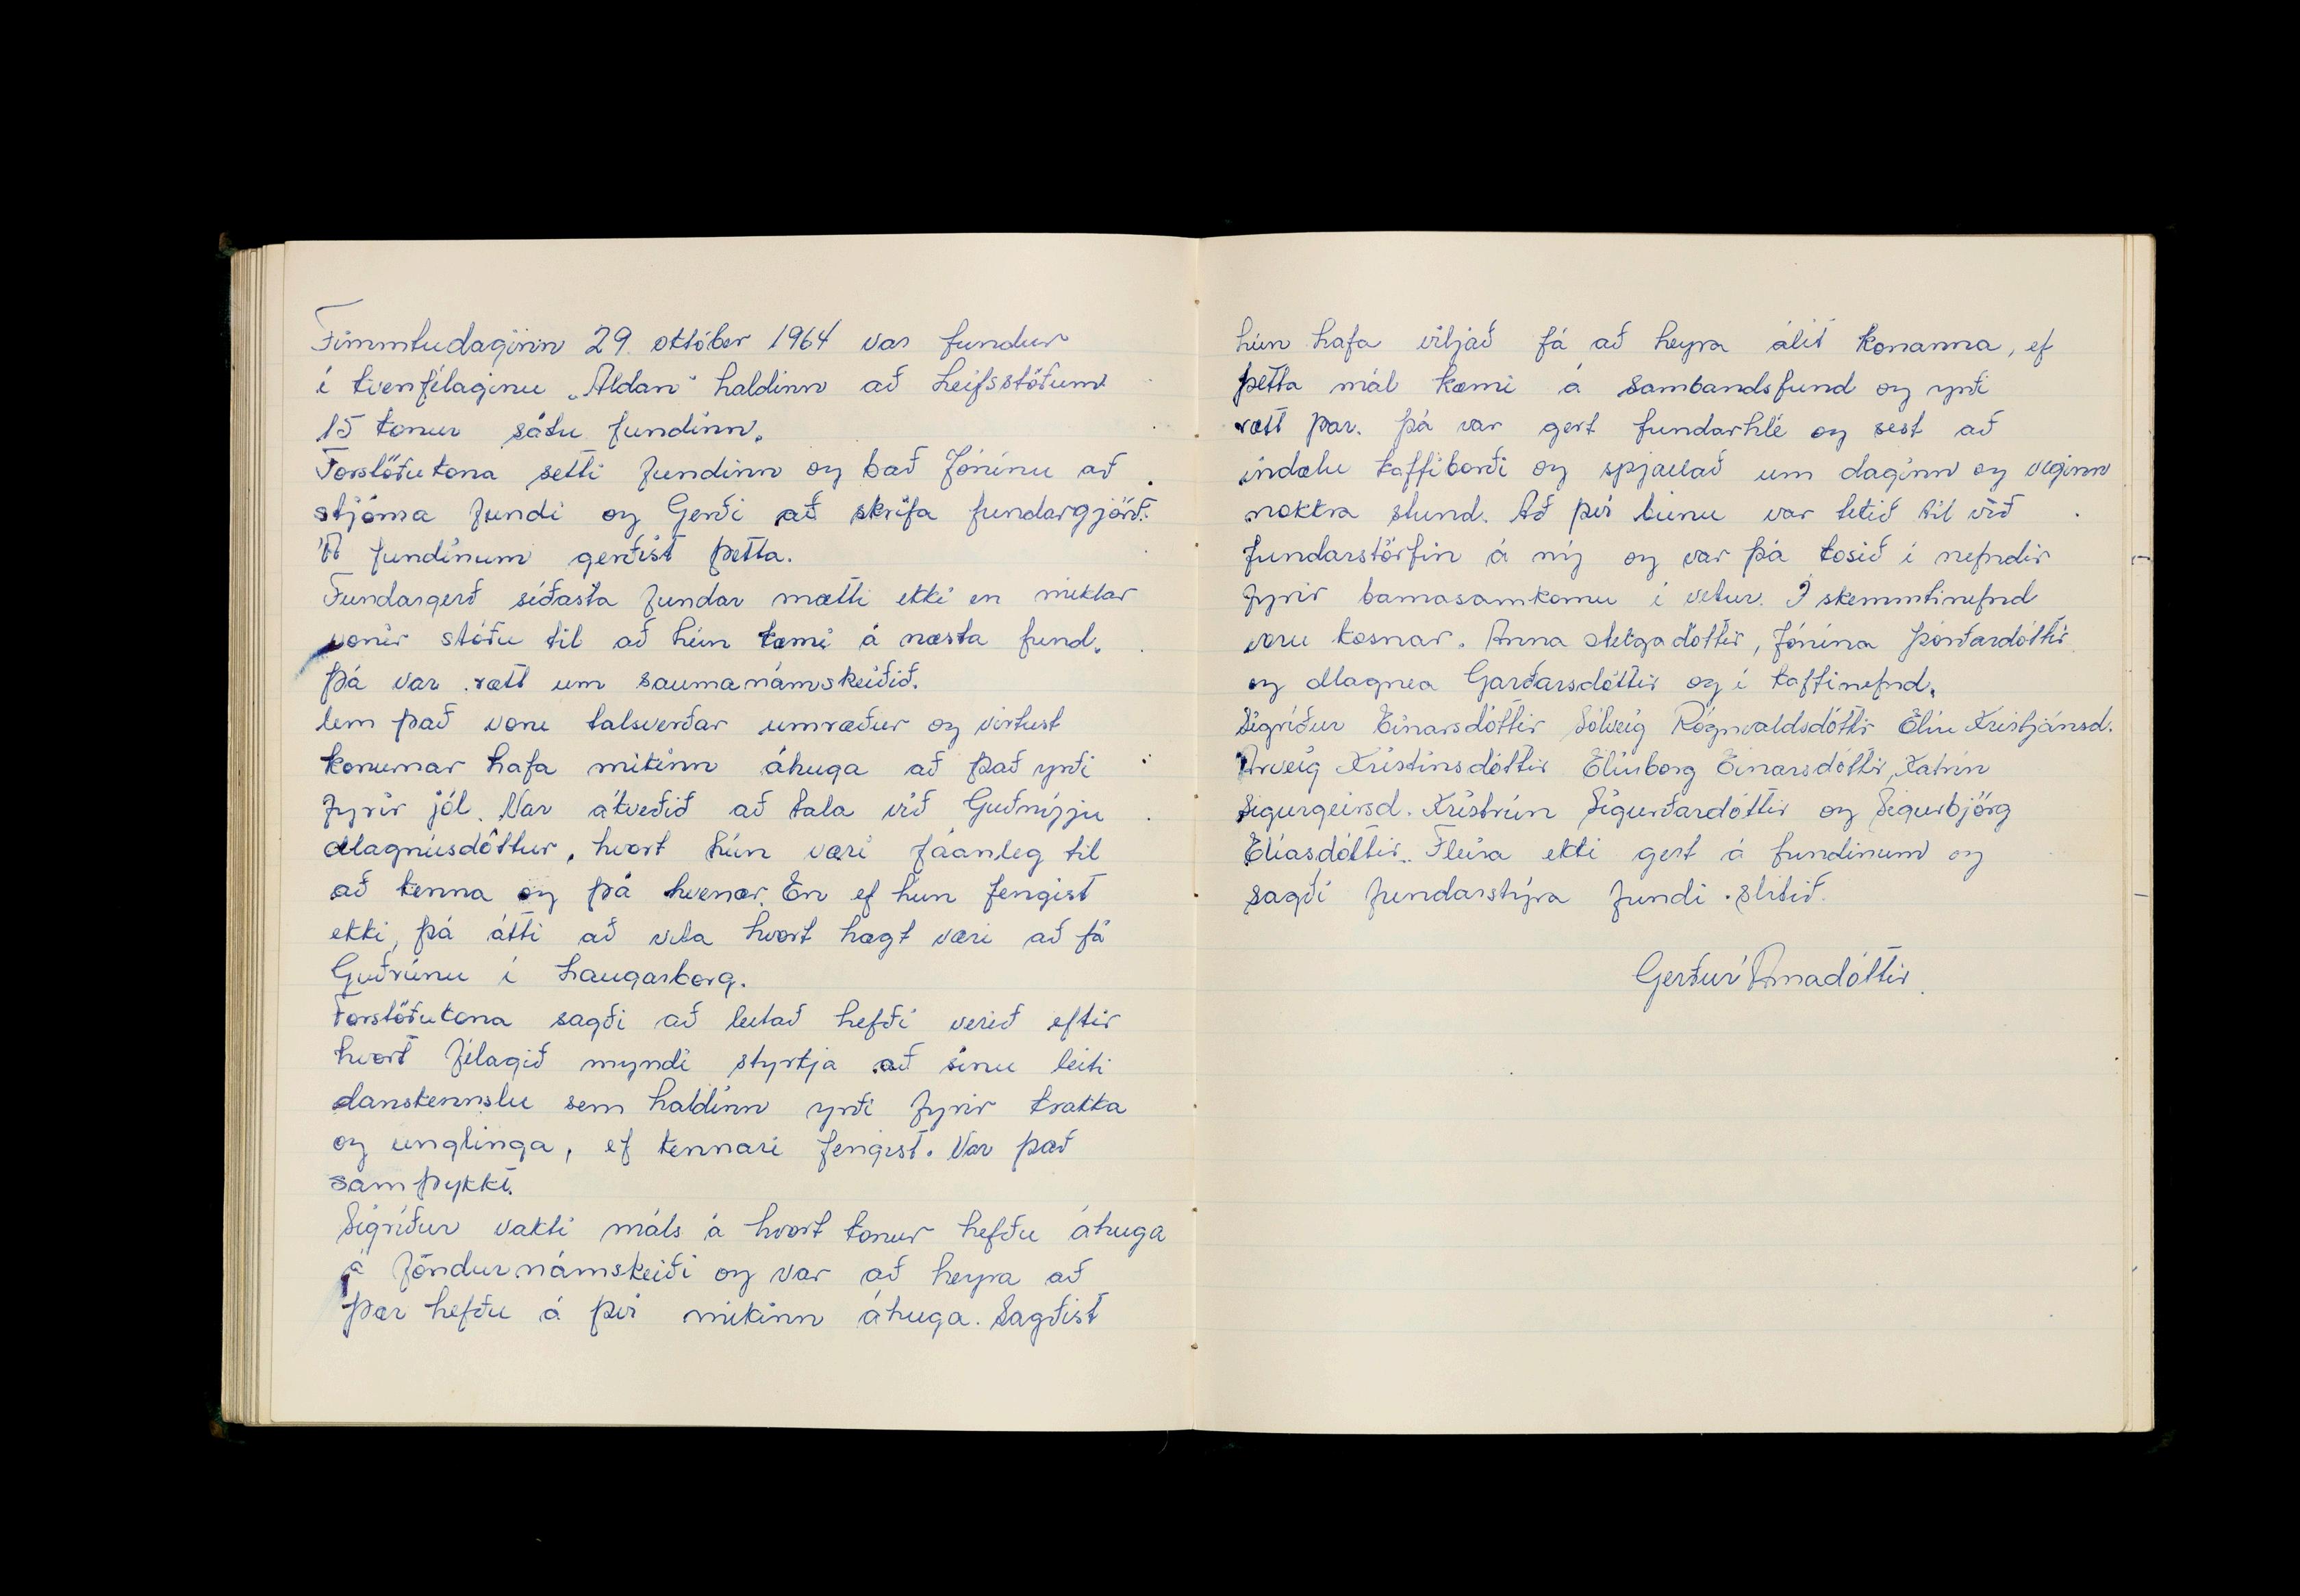 Fimmtudaginn 29. október 1964 var fundur
í kvenfélaginu „Aldan" haldinn að Leifsstöðum
15 konur sátu fundinn.
Forstöðukona setti fundinn og bað Jónínu að
stjórna fundi og Gerði að skrifa fundargjörð.
Á fundinum gerðist þetta.
Fundargerð síðasta fundar mætti ekki en miklar
vonir stóðu til að hún kæmi á næsta fund.
Þá var rætt um saumanámskeiðið.
Um það voru talsverðar umræður og virtust
konurnar hafa mikinn áhuga að það yrði
fyrir jól. Var ákveðið að tala við Guðnýju
Magnúsdóttur, hvort hún væri fáanleg til
að kenna og þá hvenær. En ef hun fengist
ekki, þá átti að vita hvort hægt væri að fá
Guðrúnu í Laugarborg.
Forstöðukona sagði að leitað hefði verið eftir
hvort félagið myndi styrkja að sínu leiti
danskennslu sem haldinn yrði fyrir krakka
og unglinga, ef kennari fengist. Var það
samþykkt.
Sigríður vakti máls á hvort konur hefðu áhuga
á föndurnámskeiði og var að heyra að
þær hefðu á því mikinn áhuga. Sagðist
hún hafa viljað fá að heyra álit konanna, ef
þetta mál kæmi á sambandsfund og yrði
rætt þar. Þá var gert fundarhlé og sest að
indælu kaffiborði og spjallað um daginn og veginn
nokkra stund. Að því búnu var tekið til við
fundarstörfin á ný og var þá kosið í nefndir
fyrir barnasamkomu í vetur. Í skemmtinefnd
voru kosnar. Anna Helgadóttir, Jónína Þórðardóttir
og Magnea Garðarsdóttir og í kaffinefnd.
Sigríður Einarsdóttir Sólveig Rögnvaldsdóttir Elín Kristjánsd.
Árveig Kristinsdóttir Elínborg Einarsdóttir, Katrín
Sigurgeirsd. Kristrún Sigurðardóttir og Sigurbjörg
Elíasdóttir. Fleira ekki gert á fundinum og
sagði fundarstýra fundi slitið.
Gerður Árnadóttir